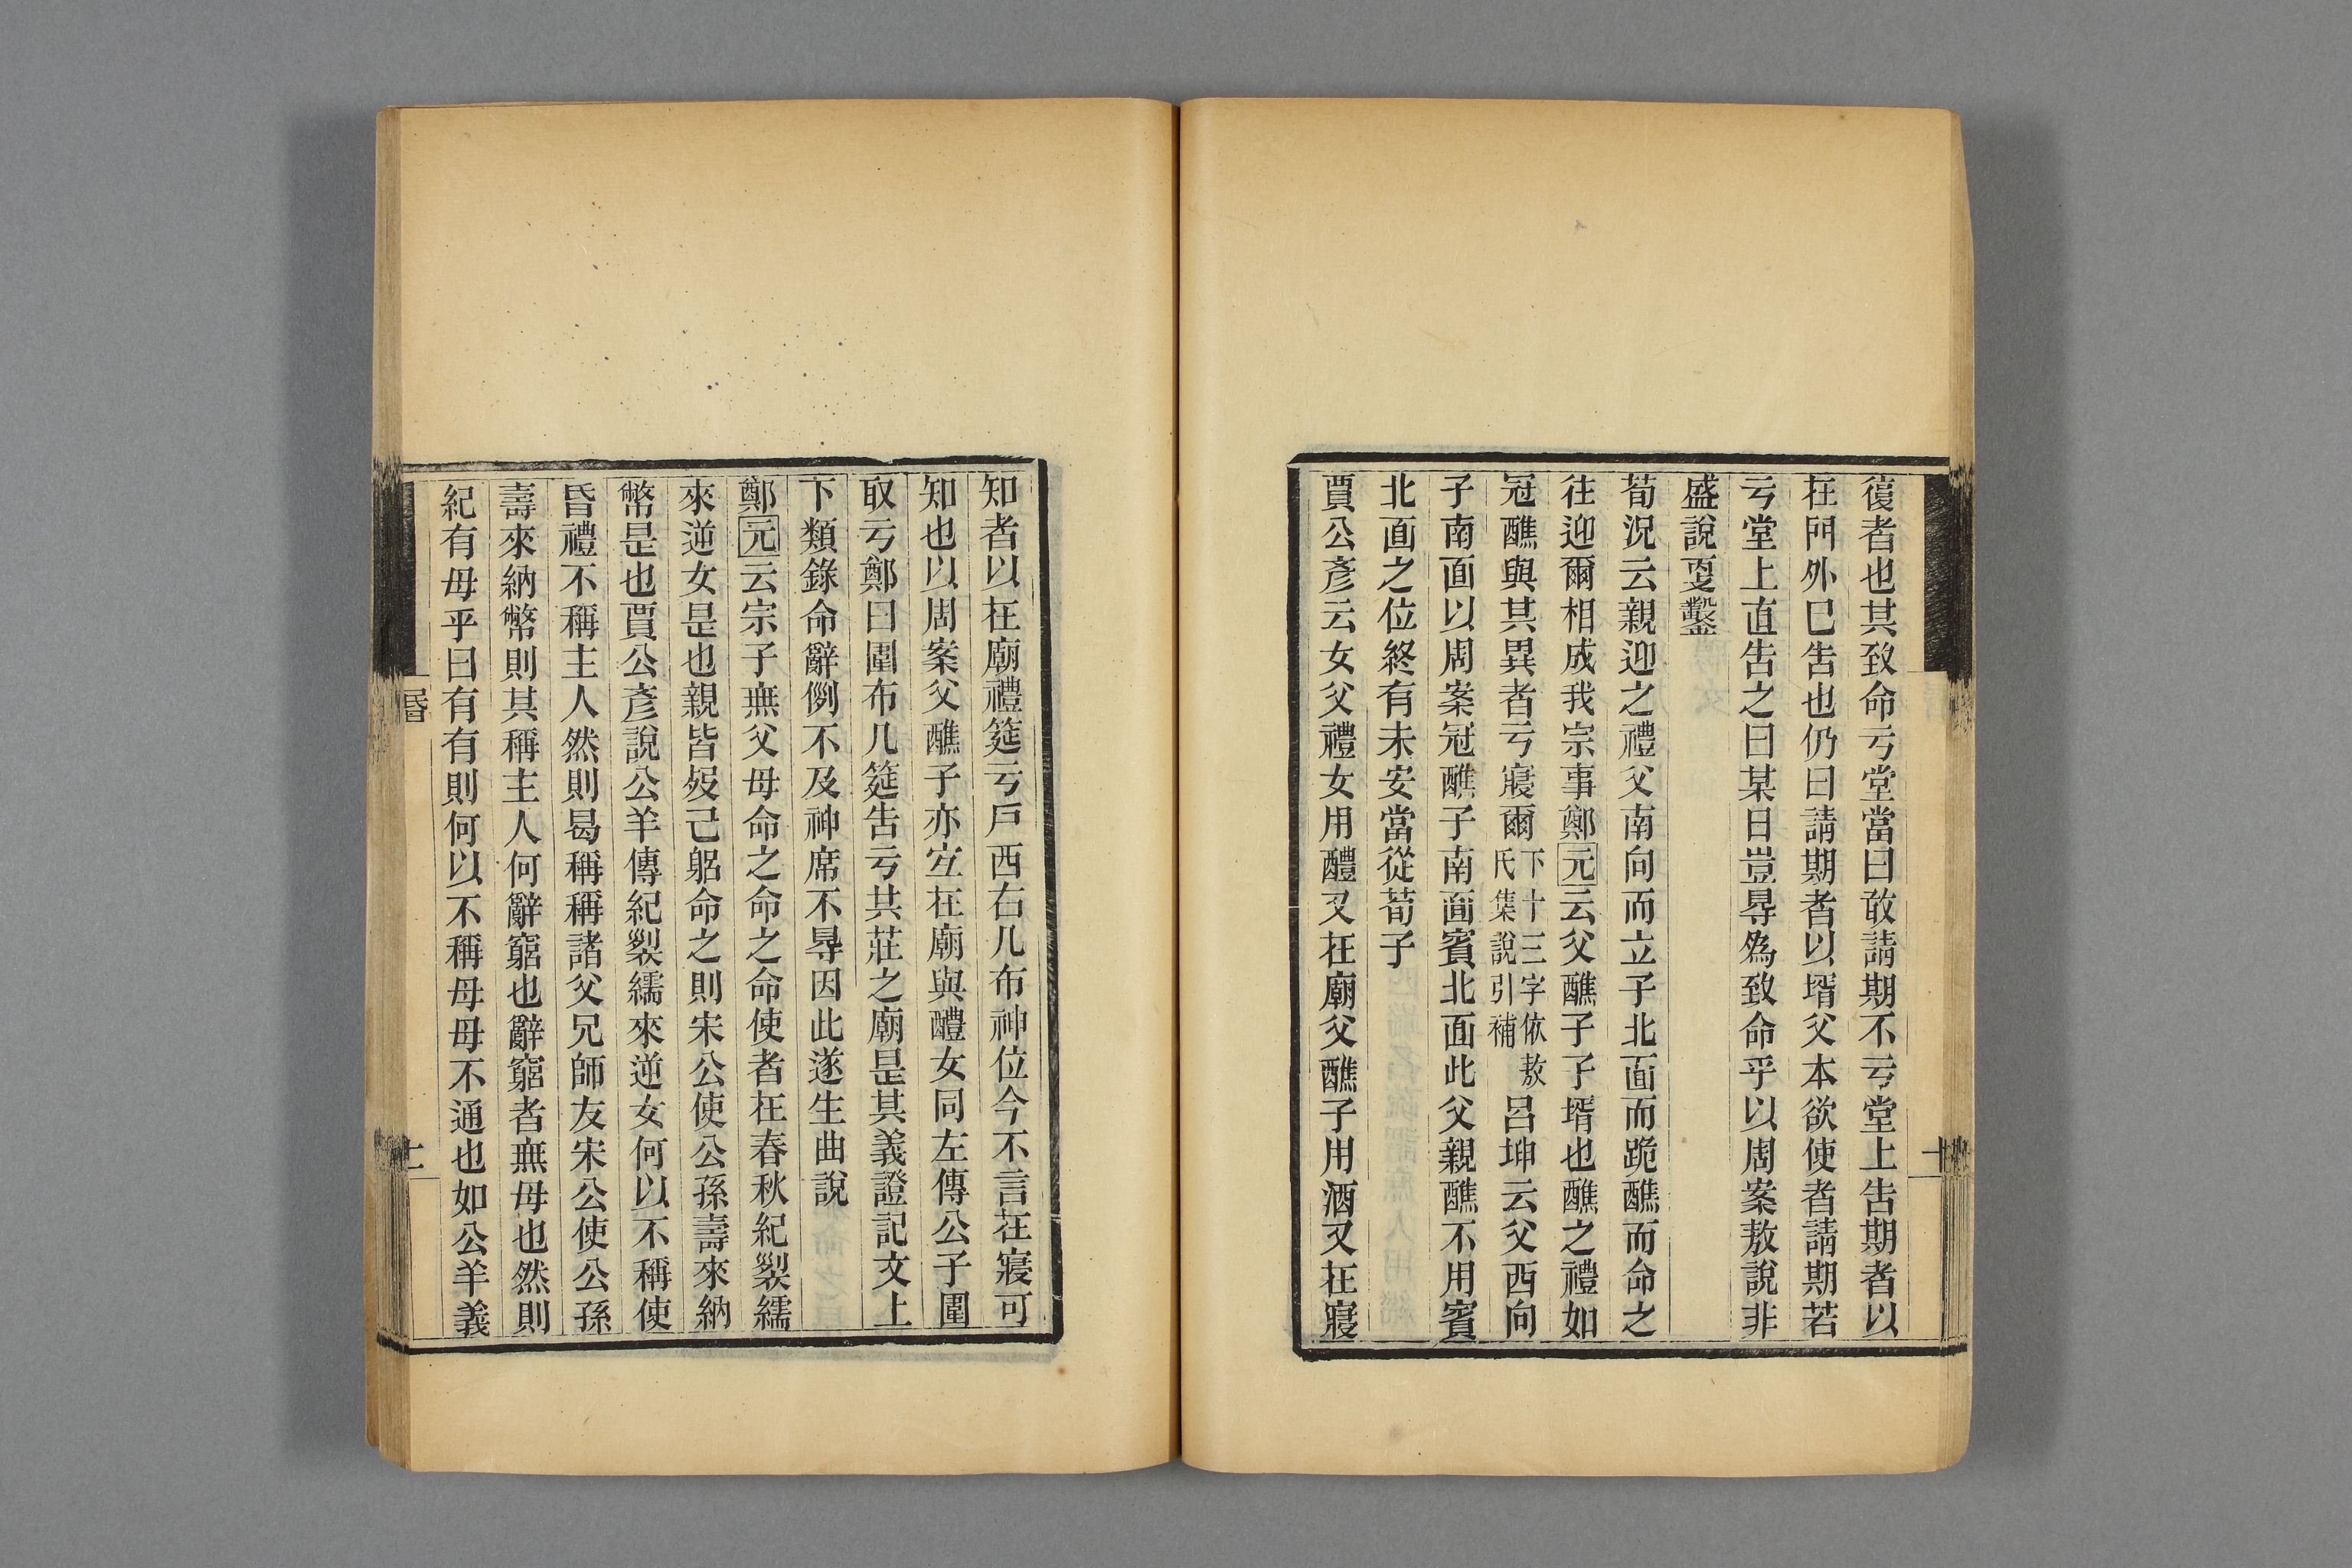 復者也其致命亏堂當曰敢請期不亏堂上告期者以
在門外巳告也仍曰請期者以壻父本欲使者請期若
亏堂上直告之曰某日豈㝵為致命乎以周案敖說非
盛說㪅鑿
荀況云親迎之禮父南向而立子北面而跪醮而命之
往迎爾相成我宗事鄭元云父醮子子壻也醮之禮如
冠醮與其異者亏寢爾下十三字依敖氏集說引補呂坤云父西向
子南面以周案冠醮子南面賓北面此父親醮不用賓
北面之位終有未安當從荀子
賈公彥云女父禮女用醴又在廟父醮子用酒又在寢
知者以在廟禮筵亏戶西右几布神位今不言在寢可
知也以周案父醮子亦宜在廟與醴女同左傳公子圍
取亏鄭曰圍布几筵告亏共莊之廟是其義證記文上
下類錄命辭例不及神席不㝵因此遂生曲說
鄭元云宗子無父母命之命之命使者在春秋紀裂繻
來逆女是也親皆歿己躬命之則宋公使公孫壽來納
幣是也賈公彥說公羊傳紀裂繻來逆女何以不稱使
昏禮不稱主人然則曷稱稱諸父兄師友宋公使公孫
壽來納幣則其稱主人何辭窮也辭窮者無母也然則
紀有母乎曰有有則何以不稱母母不通也如公羊義